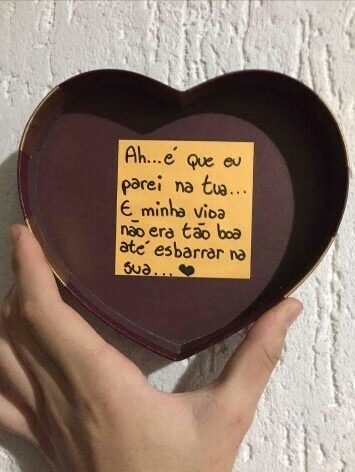 Ah...é que eu
parei na tua...
E minha vida
não era tão boa
até esbarrar na
sua... ♥